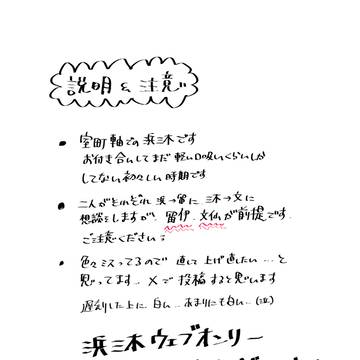 説明&注意
• 室町軸での浜三木です
お付き合いしてまだ軽い口吸いくらいしか
してない初々しい時期です
• 二人がそれぞれ 浜→留に 三木→文に
想談をしますが、留伊、文仙が前提です。
ご注意ください;
• 色々ミスってるので 直して上げ直したい…と
思ってます… Xで投稿すると思います
遅刻した上に、白い… あまりにも白い…(泣)
浜三木ウェブオンリー